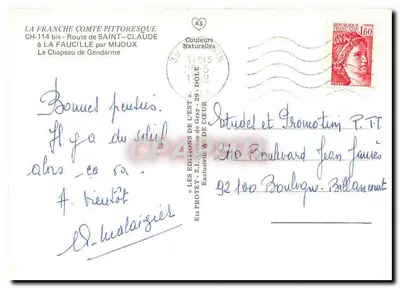 LA FRANCHE COMTE PITTORESQUE
CH-114 bis - Route de SAINT-CLAUDE
à LA FAUCILLE par MIJOUX
Le Chapeau de Gendarme
AS
Couleurs
Naturelles
1,60
Bonnes pensées.
Il y a du soleil
alors ça va.
A bientôt
« LES EDITIONS DE L'EST »
Ets PROTET - Z.I. - 39 - DOLE
Exclusivité AS DE CŒUR
Etudes et Promotion P.T.T
210 Boulevard Jean Jaurès
92100 Boulogne-Billancourt